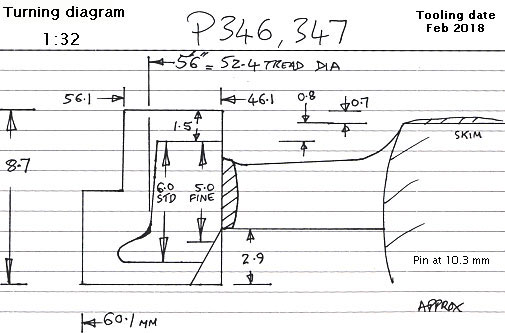 Turning diagram
1:32
P346, 347
Tooling date
Feb 2018
56" = 52.4 TREAD DIA
56.1
46.1
0.8
0.7
1.5
SKIM
8.7
6.0
STD
5.0
FINE
2.9
Pin at 10.3 mm
60.1 MM
APPROX